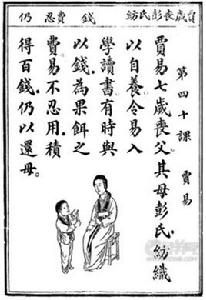 賈歲喪彭氏紡 錢 費忍 仍
第四十課 賈易
賈易七歲喪父。其母彭氏。紡織
以自養。令易入
學讀書。有時與
以錢。為果餌之
費。易不忍用。積
得百錢。仍以還母。